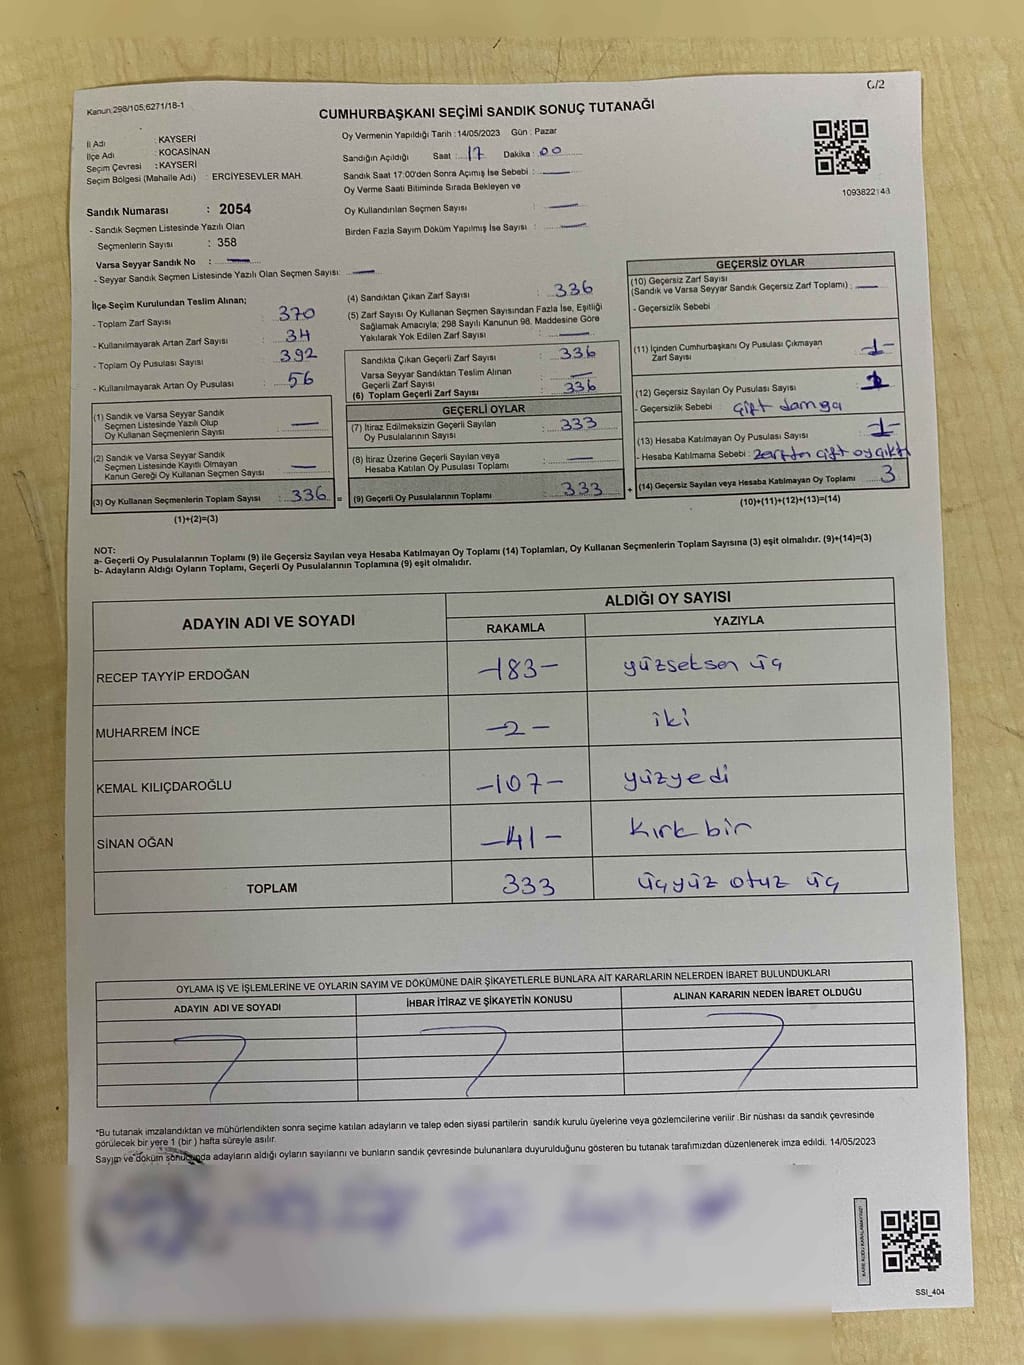 C/2
Kanun:298/105,6271/18-1
CUMHURBAŞKANI SEÇİMİ SANDIK SONUÇ TUTANAĞI
İl Adı : KAYSERİ
İlçe Adı : KOCASİNAN
Seçim Çevresi : KAYSERİ
Seçim Bölgesi (Mahalle Adı) : ERCİYESEVLER MAH.
Oy Vermenin Yapıldığı Tarih :14/05/2023 Gün : Pazar
Sandığın Açıldığı Saat : 17 Dakika : 00
Sandık Saat 17:00'den Sonra Açımış İse Sebebi : —
Oy Verme Saati Bitiminde Sırada Bekleyen ve
Oy Kullandırılan Seçmen Sayısı : —
Birden Fazla Sayım Döküm Yapılmış İse Sayısı : —
1093822143
Sandık Numarası : 2054
- Sandık Seçmen Listesinde Yazılı Olan
Seçmenlerin Sayısı : 358
Varsa Seyyar Sandık No : —
- Seyyar Sandık Seçmen Listesinde Yazılı Olan Seçmen Sayısı: —
İlçe Seçim Kurulundan Teslim Alınan;
- Toplam Zarf Sayısı : 370
- Kullanılmayarak Artan Zarf Sayısı : 34
- Toplam Oy Pusulası Sayısı : 392
- Kullanılmayarak Artan Oy Pusulası : 56
(1) Sandık ve Varsa Seyyar Sandık
Seçmen Listesinde Yazılı Olup
Oy Kullanan Seçmenlerin Sayısı : —
(2) Sandık ve Varsa Seyyar Sandık
Seçmen Listesinde Kayıtlı Olmayan
Kanun Gereği Oy Kullanan Seçmen Sayısı : —
(3) Oy Kullanan Seçmenlerin Toplam Sayısı : 336 =
(1)+(2)=(3)
(4) Sandıktan Çıkan Zarf Sayısı : 336
(5) Zarf Sayısı Oy Kullanan Seçmen Sayısından Fazla İse, Eşitliği
Sağlamak Amacıyla; 298 Sayılı Kanunun 98. Maddesine Göre
Yakılarak Yok Edilen Zarf Sayısı : —
Sandıkta Çıkan Geçerli Zarf Sayısı : 336
Varsa Seyyar Sandıktan Teslim Alınan
Geçerli Zarf Sayısı : —
(6) Toplam Geçerli Zarf Sayısı : 336
GEÇERLİ OYLAR
(7) İtiraz Edilmeksizin Geçerli Sayılan
Oy Pusulalarının Sayısı : 333
(8) İtiraz Üzerine Geçerli Sayılan veya
Hesaba Katılan Oy Pusulası Toplamı : —
(9) Geçerli Oy Pusulalarının Toplamı : 333 +
GEÇERSİZ OYLAR
(10) Geçersiz Zarf Sayısı
(Sandık ve Varsa Seyyar Sandık Geçersiz Zarf Toplamı) : —
- Geçersizlik Sebebi
(11) İçinden Cumhurbaşkanı Oy Pusulası Çıkmayan
Zarf Sayısı -1-
(12) Geçersiz Sayılan Oy Pusulası Sayısı : 1
- Geçersizlik Sebebi : Çift damga
(13) Hesaba Katılmayan Oy Pusulası Sayısı : -1-
- Hesaba Katılmama Sebebi : zarftan çift oy çıktı
(14) Geçersiz Sayılan veya Hesaba Katılmayan Oy Toplamı : 3
(10)+(11)+(12)+(13)=(14)
NOT:
a- Geçerli Oy Pusulalarının Toplamı (9) ile Geçersiz Sayılan veya Hesaba Katılmayan Oy Toplamı (14) Toplamları, Oy Kullanan Seçmenlerin Toplam Sayısına (3) eşit olmalıdır. (9)+(14)=(3)
b- Adayların Aldığı Oyların Toplamı, Geçerli Oy Pusulalarının Toplamına (9) eşit olmalıdır.
ADAYIN ADI VE SOYADI ALDIĞI OY SAYISI
RAKAMLA YAZIYLA
RECEP TAYYİP ERDOĞAN -183- yüzseksen üç
MUHARREM İNCE -2- iki
KEMAL KILIÇDAROĞLU -107- yüzyedi
SİNAN OĞAN -41- Kırk bir
TOPLAM 333 üçyüz otuz üç
OYLAMA İŞ VE İŞLEMLERİNE VE OYLARIN SAYIM VE DÖKÜMÜNE DAİR ŞİKAYETLERLE BUNLARA AİT KARARLARIN NELERDEN İBARET BULUNDUKLARI
ADAYIN ADI VE SOYADI İHBAR İTİRAZ VE ŞİKAYETİN KONUSU ALINAN KARARIN NEDEN İBARET OLDUĞU
*Bu tutanak imzalandıktan ve mühürlendikten sonra seçime katılan adayların ve talep eden siyasi partilerin sandık kurulu üyelerine veya gözlemcilerine verilir .Bir nüshası da sandık çevresinde
görülecek bir yere 1 (bir ) hafta süreyle asılır.
Sayım ve döküm sonucunda adayların aldığı oyların sayılarını ve bunların sandık çevresinde bulunanlara duyurulduğunu gösteren bu tutanak tarafımızdan düzenlenerek imza edildi. 14/05/2023
SSI_404